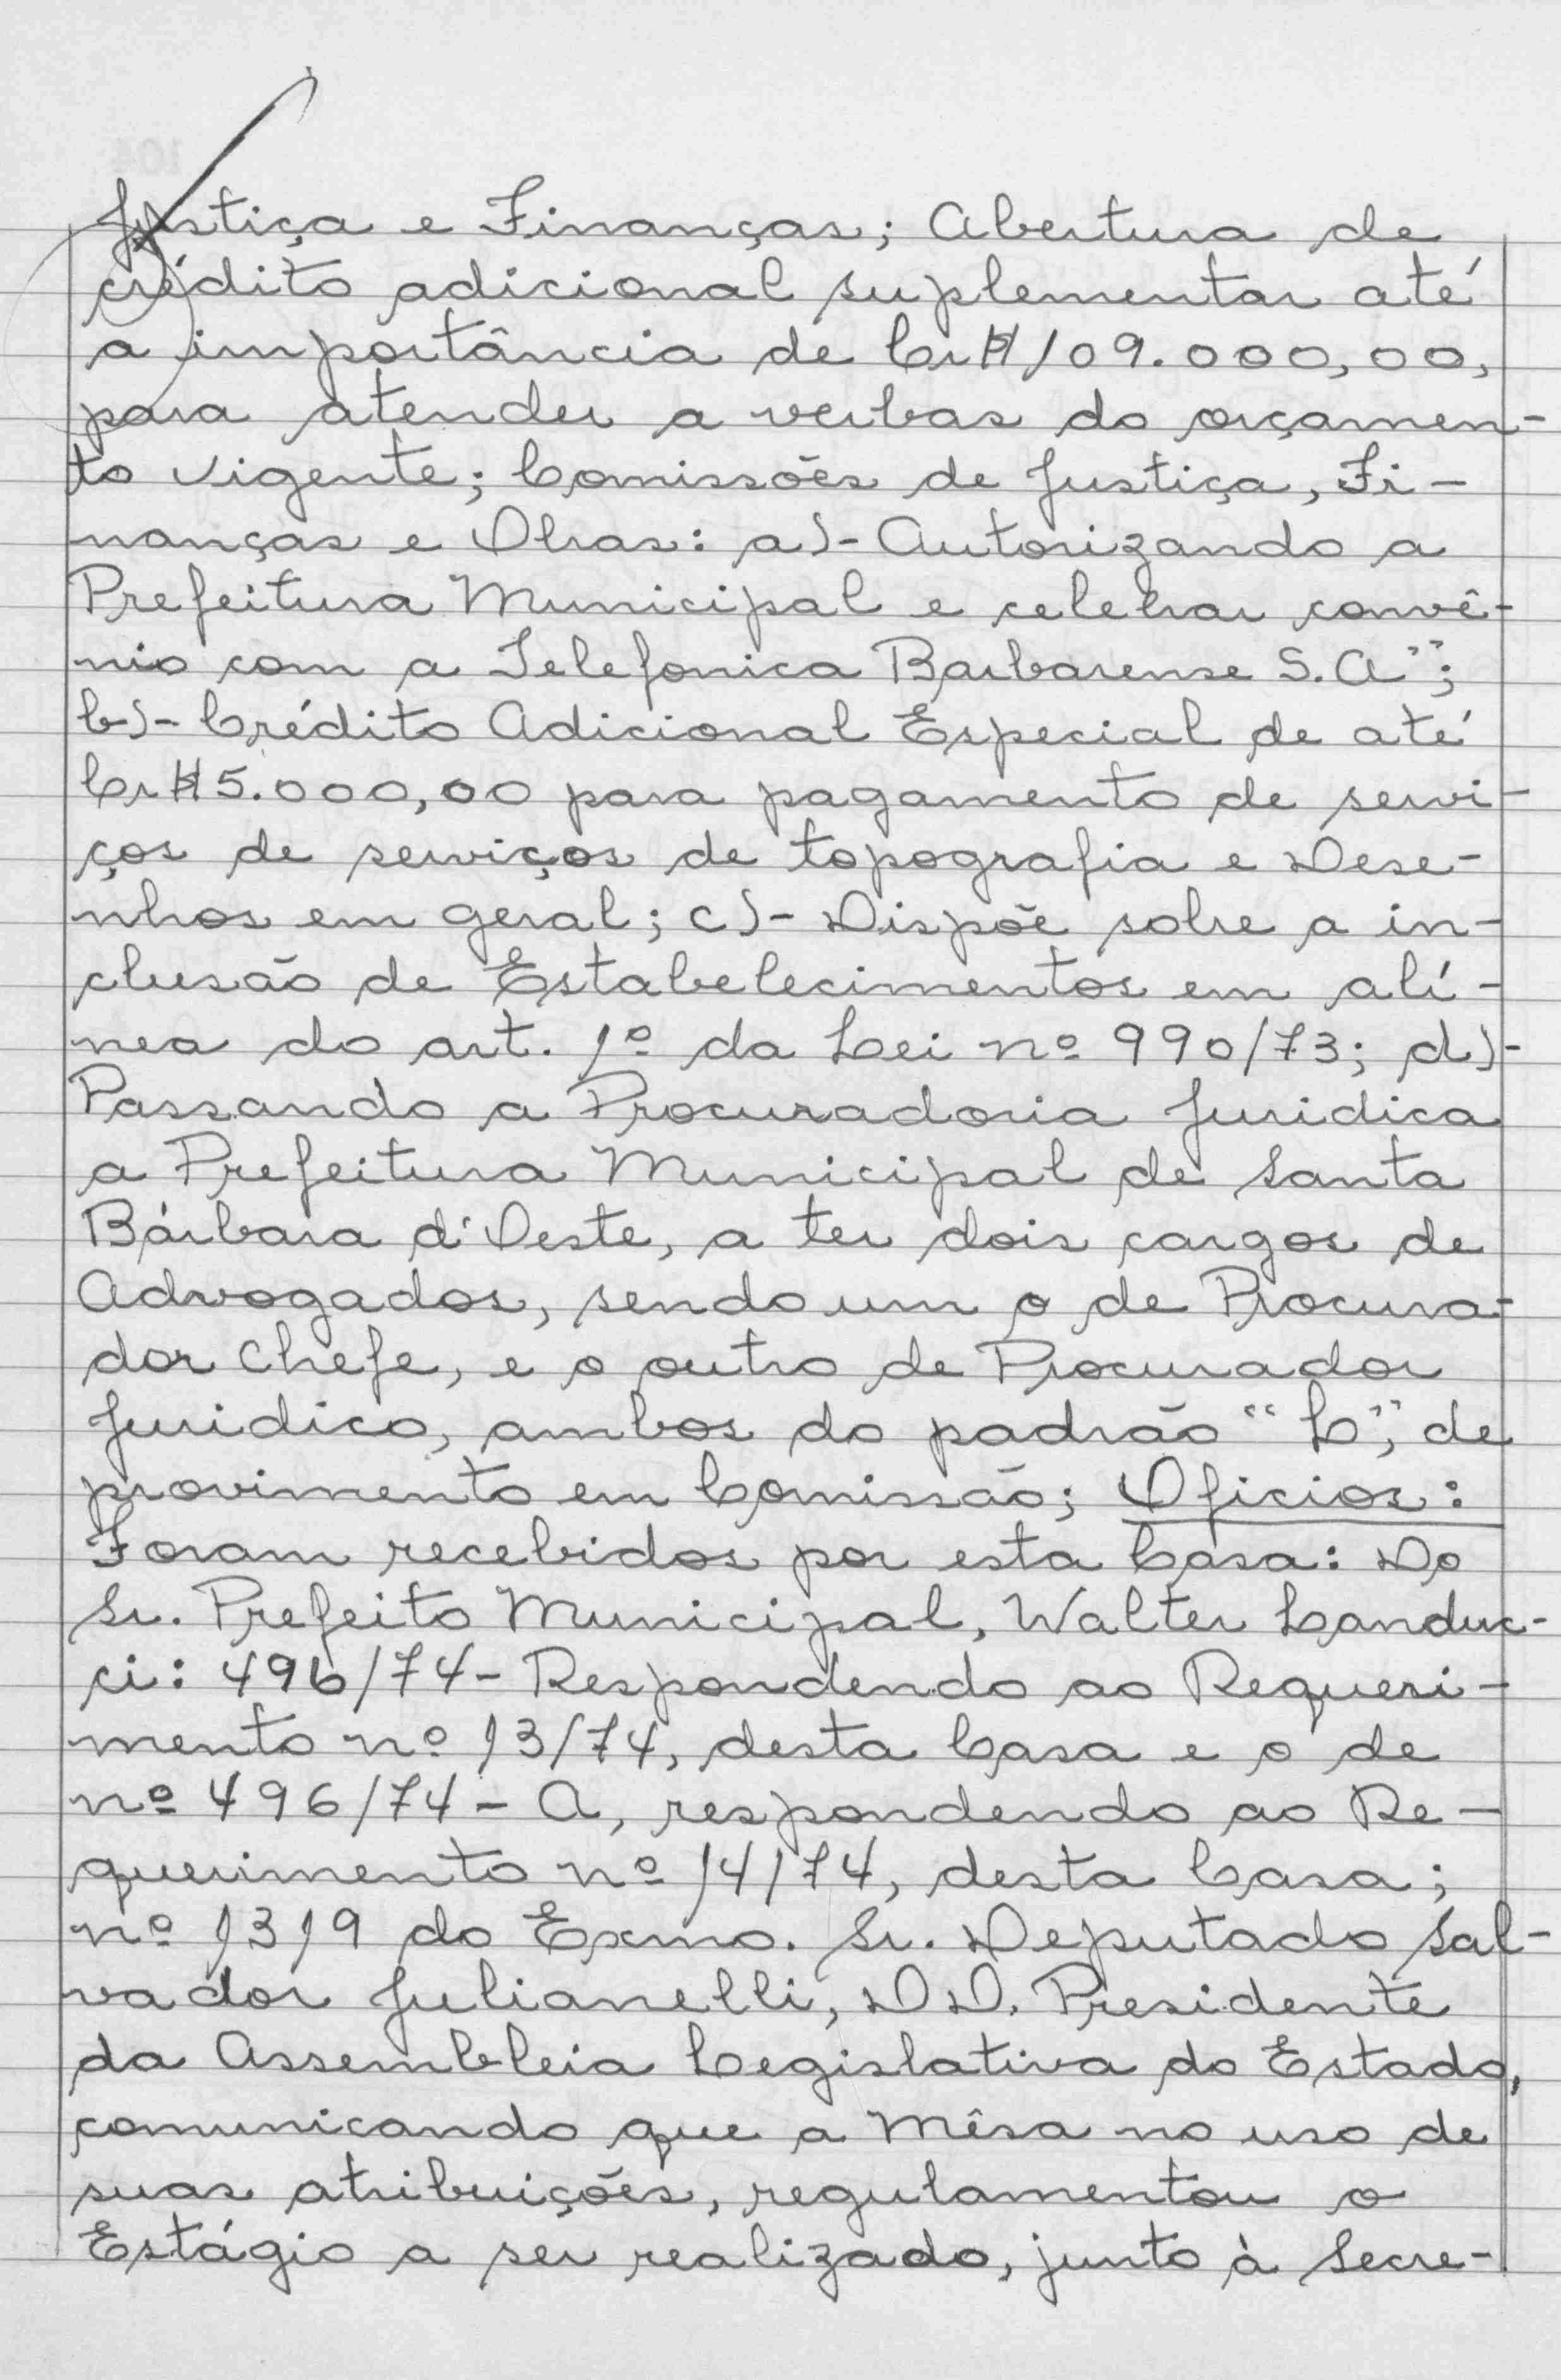 Justiça e Finanças; Abertura de
crédito adicional suplementar até
a importância de Cr$109.000,00,
para atender a verbas do orçamen-
to vigente; Comissões de Justiça, Fi-
nanças e Obras: a)- Autorizando a
Prefeitura Municipal e celebrar convê-
nio com a Telefonica Barbarense S.A";
b)- Crédito Adicional Especial de até
Cr$5.000,00 para pagamento de servi-
ços de serviços de topografia e Dese-
nhos em geral; c)- Dispõe sobre a in-
clusão de Estabelecimentos em alí-
nea do art. 1º da Lei nº 990/73; d)-
Passando a Procuradoria Juridica
a Prefeitura Municipal de Santa
Bárbara d'Oeste, a ter dois cargos de
Advogados, sendo um o de Procura-
dor Chefe, e o outro de Procurador
Juridico, ambos do padrão "L", de
provimento em Comissão; Oficios:
Foram recebidos por esta Casa: Do
Sr. Prefeito Municipal, Walter Landuc-
ci: 496/74- Respondendo ao Requeri-
mento nº 13/74, desta Casa e o de
nº 496/74- A, respondendo ao Re-
querimento nº 14/74, desta Casa;
nº 1319 do Exmo. Sr. Deputado Sal-
vador Julianelli, DD. Presidente
da Assembleia Legislativa do Estado,
comunicando que a Mêsa no uso de
suas atribuições, regulamentou o
Estágio a ser realizado, junto à Secre-